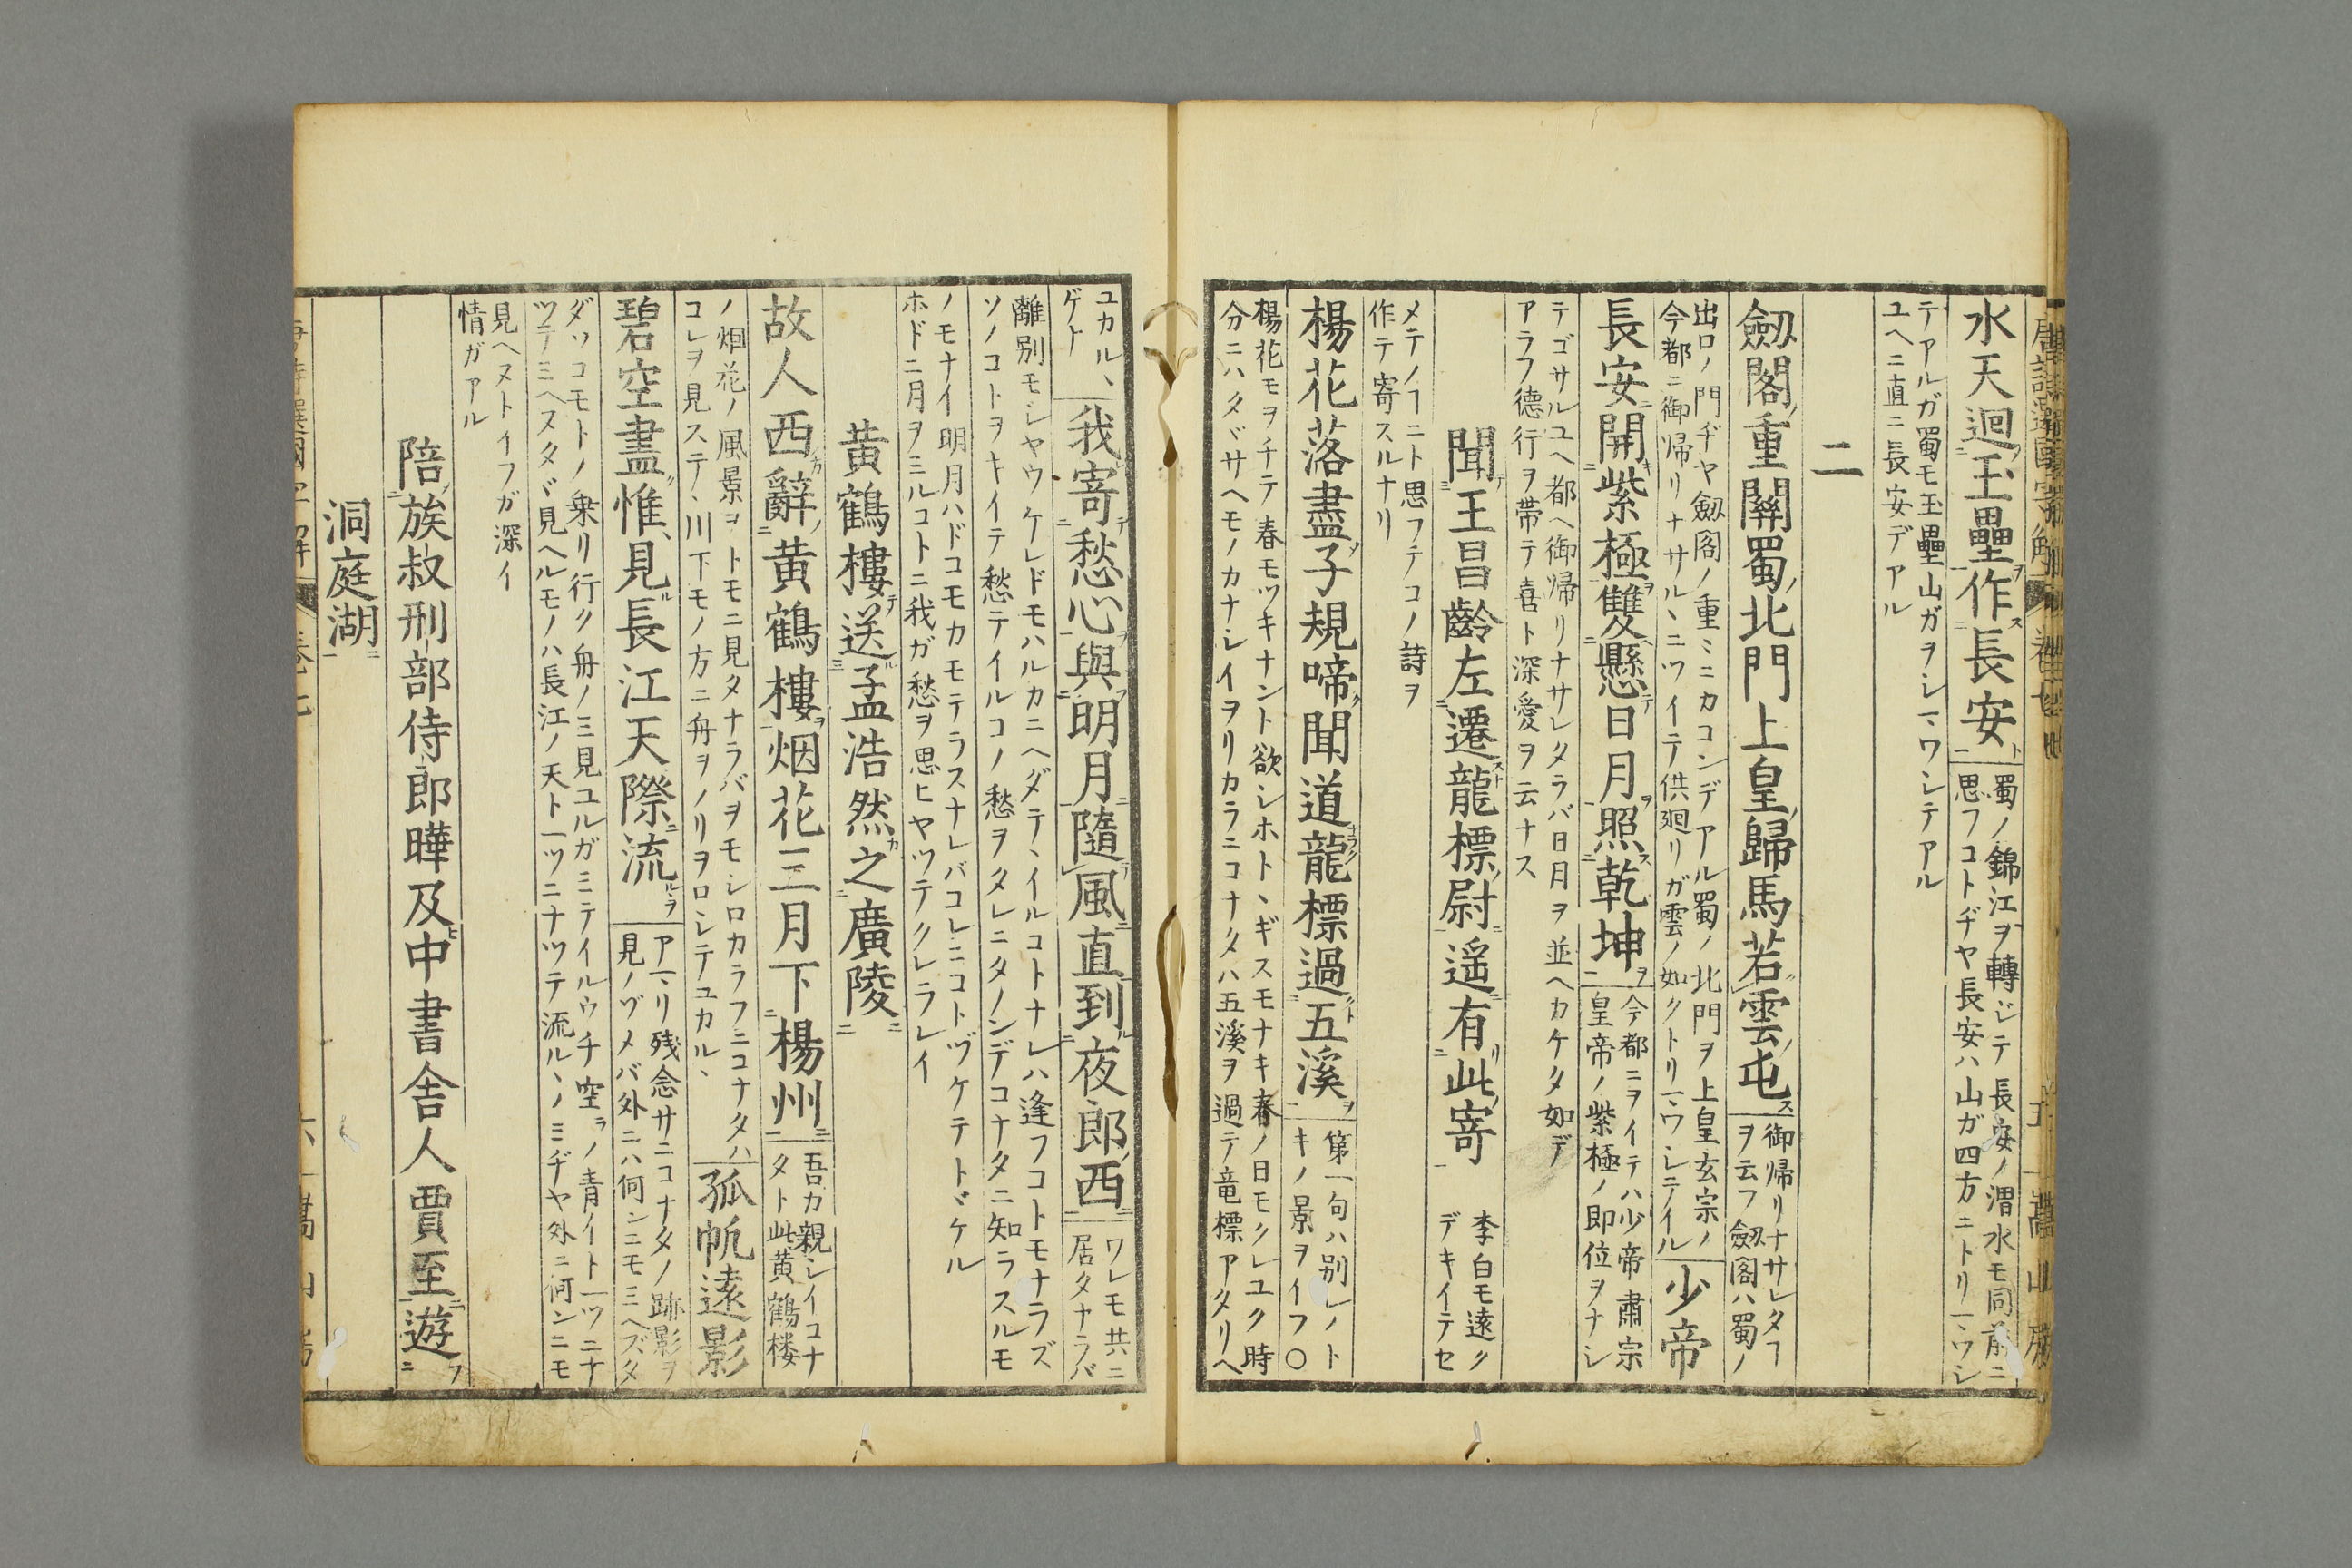 水天迴玉壘作長安
蜀ノ錦江ヲ轉ジテ長安ノ渭水モ同前ニ
思フコトヂヤ長安ハ山ガ四方ニトリマワシ
テアルガ蜀モ玉壘山ガヲシマワシテアル
ユヘニ直ニ長安デアル
二
劔閣重關蜀北門上皇歸馬若雲屯
御帰リナサレタヿ
ヲ云フ劔閣ハ蜀ノ
出口ノ門ヂヤ劔閣ノ重ミニカコンデアル蜀ノ北門ヲ上皇玄宗ノ
今都ニ御帰リナサルヽニツイテ供廻リガ雲ノ如クトリマワシテイル
少帝
長安開紫極雙懸日月照乾坤
今都ニヲイテハ少帝肅宗
皇帝ノ紫極ノ即位ヲナシ
テゴサルユヘ都ヘ御帰リナサレタラバ日月ヲ並ヘカケタ如デ
アラフ德行ヲ帯テ喜ト深愛ヲ云ナス
聞王昌齡左遷龍標尉遥有此寄
李白モ遠ク
デキイテセ
メテノヿニト思フテコノ詩ヲ
作テ寄スルナリ
楊花落盡子規啼聞道龍標過五溪
第一句ハ別レノト
キノ景ヲイフ〇
楊花モヲチテ春モツキナント欲シホトヽギスモナキ春ノ日モクレユク時
分ニハタヾサヘモノカナシイヲリカラニコナタハ五溪ヲ過テ竜標アタリヘ
ユカルヽ
ゲナ
我寄愁心與明月隨風直到夜郎西
ワレモ共ニ
居タナラバ
離別モシヤウケレドモハルカニヘダテヽイルコトナレハ逢フコトモナラズ
ソノコトヲキイテ愁テイルコノ愁ヲタレニタノンデコナタニ知ラスルモ
ノモナイ明月ハドコモカモテラスナレバコレニコトヅケテトヾケル
ホドニ月ヲミルコトニ我ガ愁ヲ思ヒヤツテクレライ
黄鶴樓送孟浩然之廣陵
故人西辭黄鶴樓烟花三月下楊州
吾カ親シイコナ
タト此黄鶴楼
ノ烟花ノ風景ヲトモニ見タナラバヲモシロカラフニコナタハ
コレヲ見ステヽ川下モノ方ニ舟ヲノリヲロシテユカルヽ
孤帆遠影
碧空盡惟見長江天際流
アマリ残念サニコナタノ跡影ヲ
見ノヅメバ外ニハ何ンニモミヘズタ
ダソコモトノ乗リ行ク舟ノミ見ユルガミテイルウチ空ラノ青イト一ツニナ
ツテミヘスタヾ見ヘルモノハ長江ノ天ト一ツニナツテ流ルヽノミヂヤ外ニ何ンニモ
見ヘヌトイフガ深イ
情ガアル
陪族叔刑部侍郎曄及中書舎人賈至遊
洞庭湖